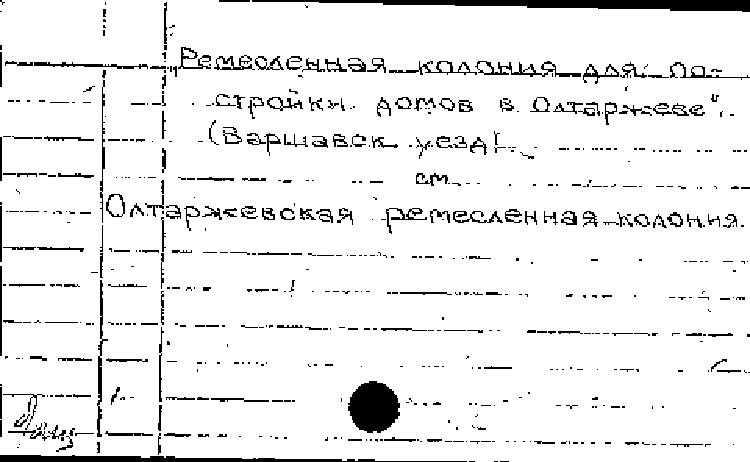 „Ремесленная колония для по-
стройки домов в Олтаржеве".
(Варшавск. уезд).
см.
Олтаржевская ремесленная колония.